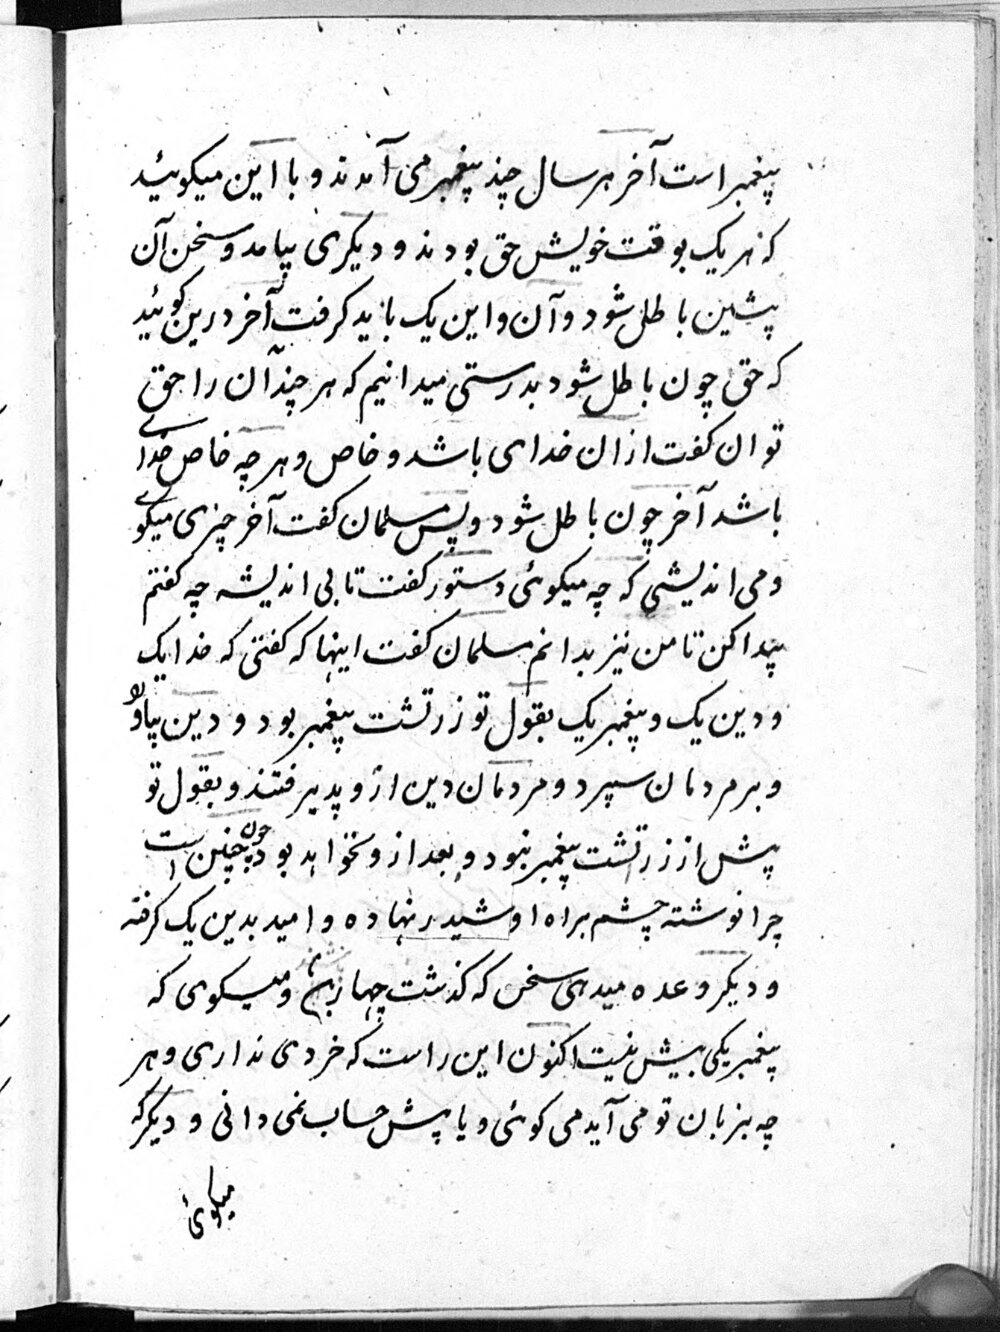 پیغمبر است آخر هر سال چند پیغمبر می آمدند و با این میکوئید
که هر یک بوقت خویش حق بودند و دیکری بیامد و سخن آن
پیشین باطل شود و آن و این یک باید کرفت آخر درین کوئید
که حق چون باطل شود بدرستی میدانیم که هر چند آن را حق
توان کفت از ان خدای باشد و خاص و هر چه خاص خدای
باشد آخر چون باطل شود و پس مسلمان کفت آخر چیزی میکوی
و می اندیشی که چه میکوئی دستور کفت تا بی اندیشه چه کفتم
پیدا کن تا من نیز بدانم مسلمان کفت اینها که کفتی که خدا یک
و دین یک و پیغمبر یک بقول تو زرتشت پیغمبر بود و دین بیاورد
و بر مردمان سپرد و مردمان دین از و پدیرفتند و بقول تو
پیش از زرتشت پیغمبر نبود و بعد از و نخواهد بود چون چنین است
چرا نوشته چشم براه اوشیدر نهاده و امید بدین یک کرفته
و دیکر وعده میدهی سخن که کذشت چها بزبان و میکوی که
پیغمبر یکی بیش نیست اکنون این راست که خردی نداری و هر
چه بزبان تو می آید می کوئی و یا پیش حساب نمی دانی و دیکر که
میکوئ